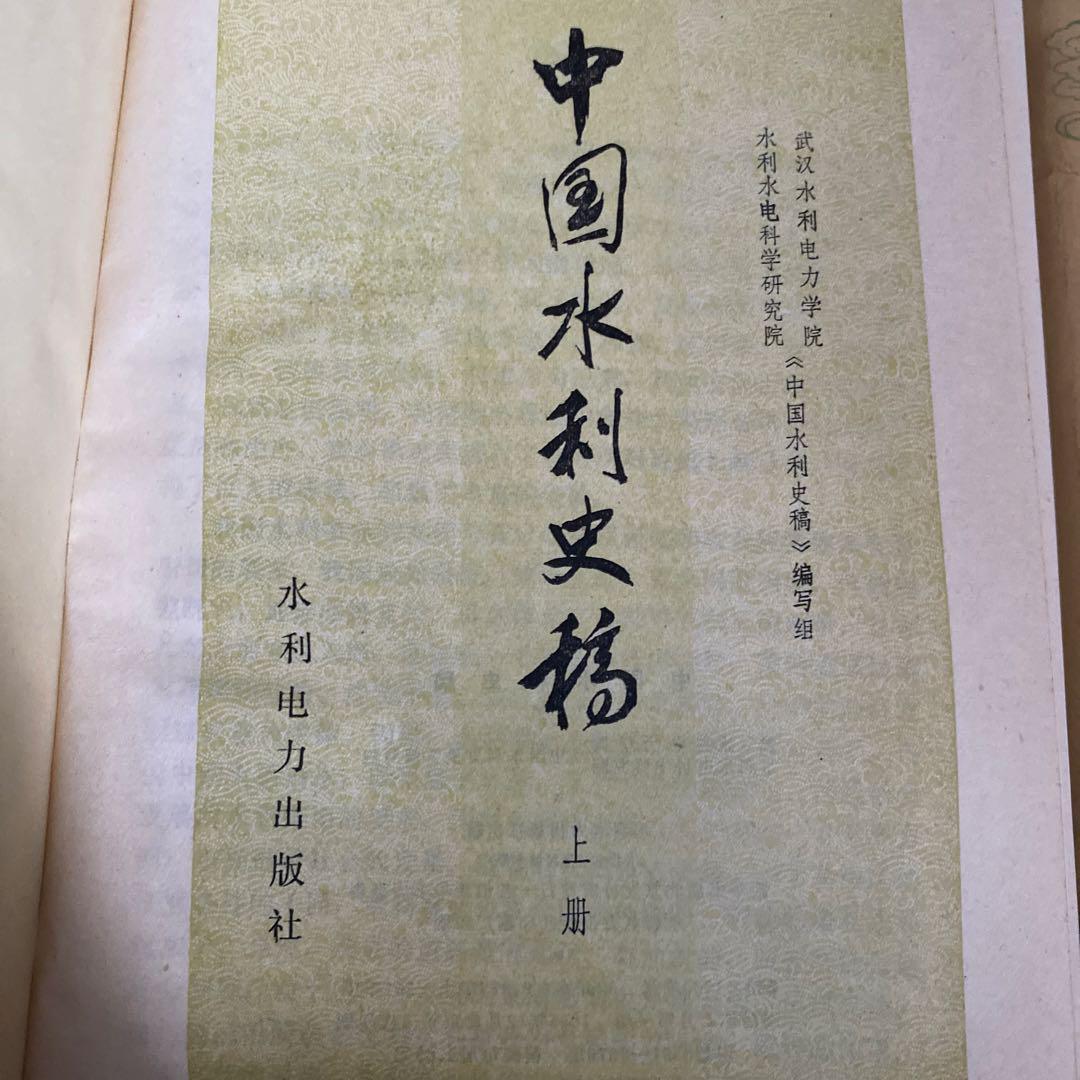 武汉水利电力学院
水利水电科学研究院
《中国水利史稿》编写组
中国水利史稿
上册
水利电力出版社